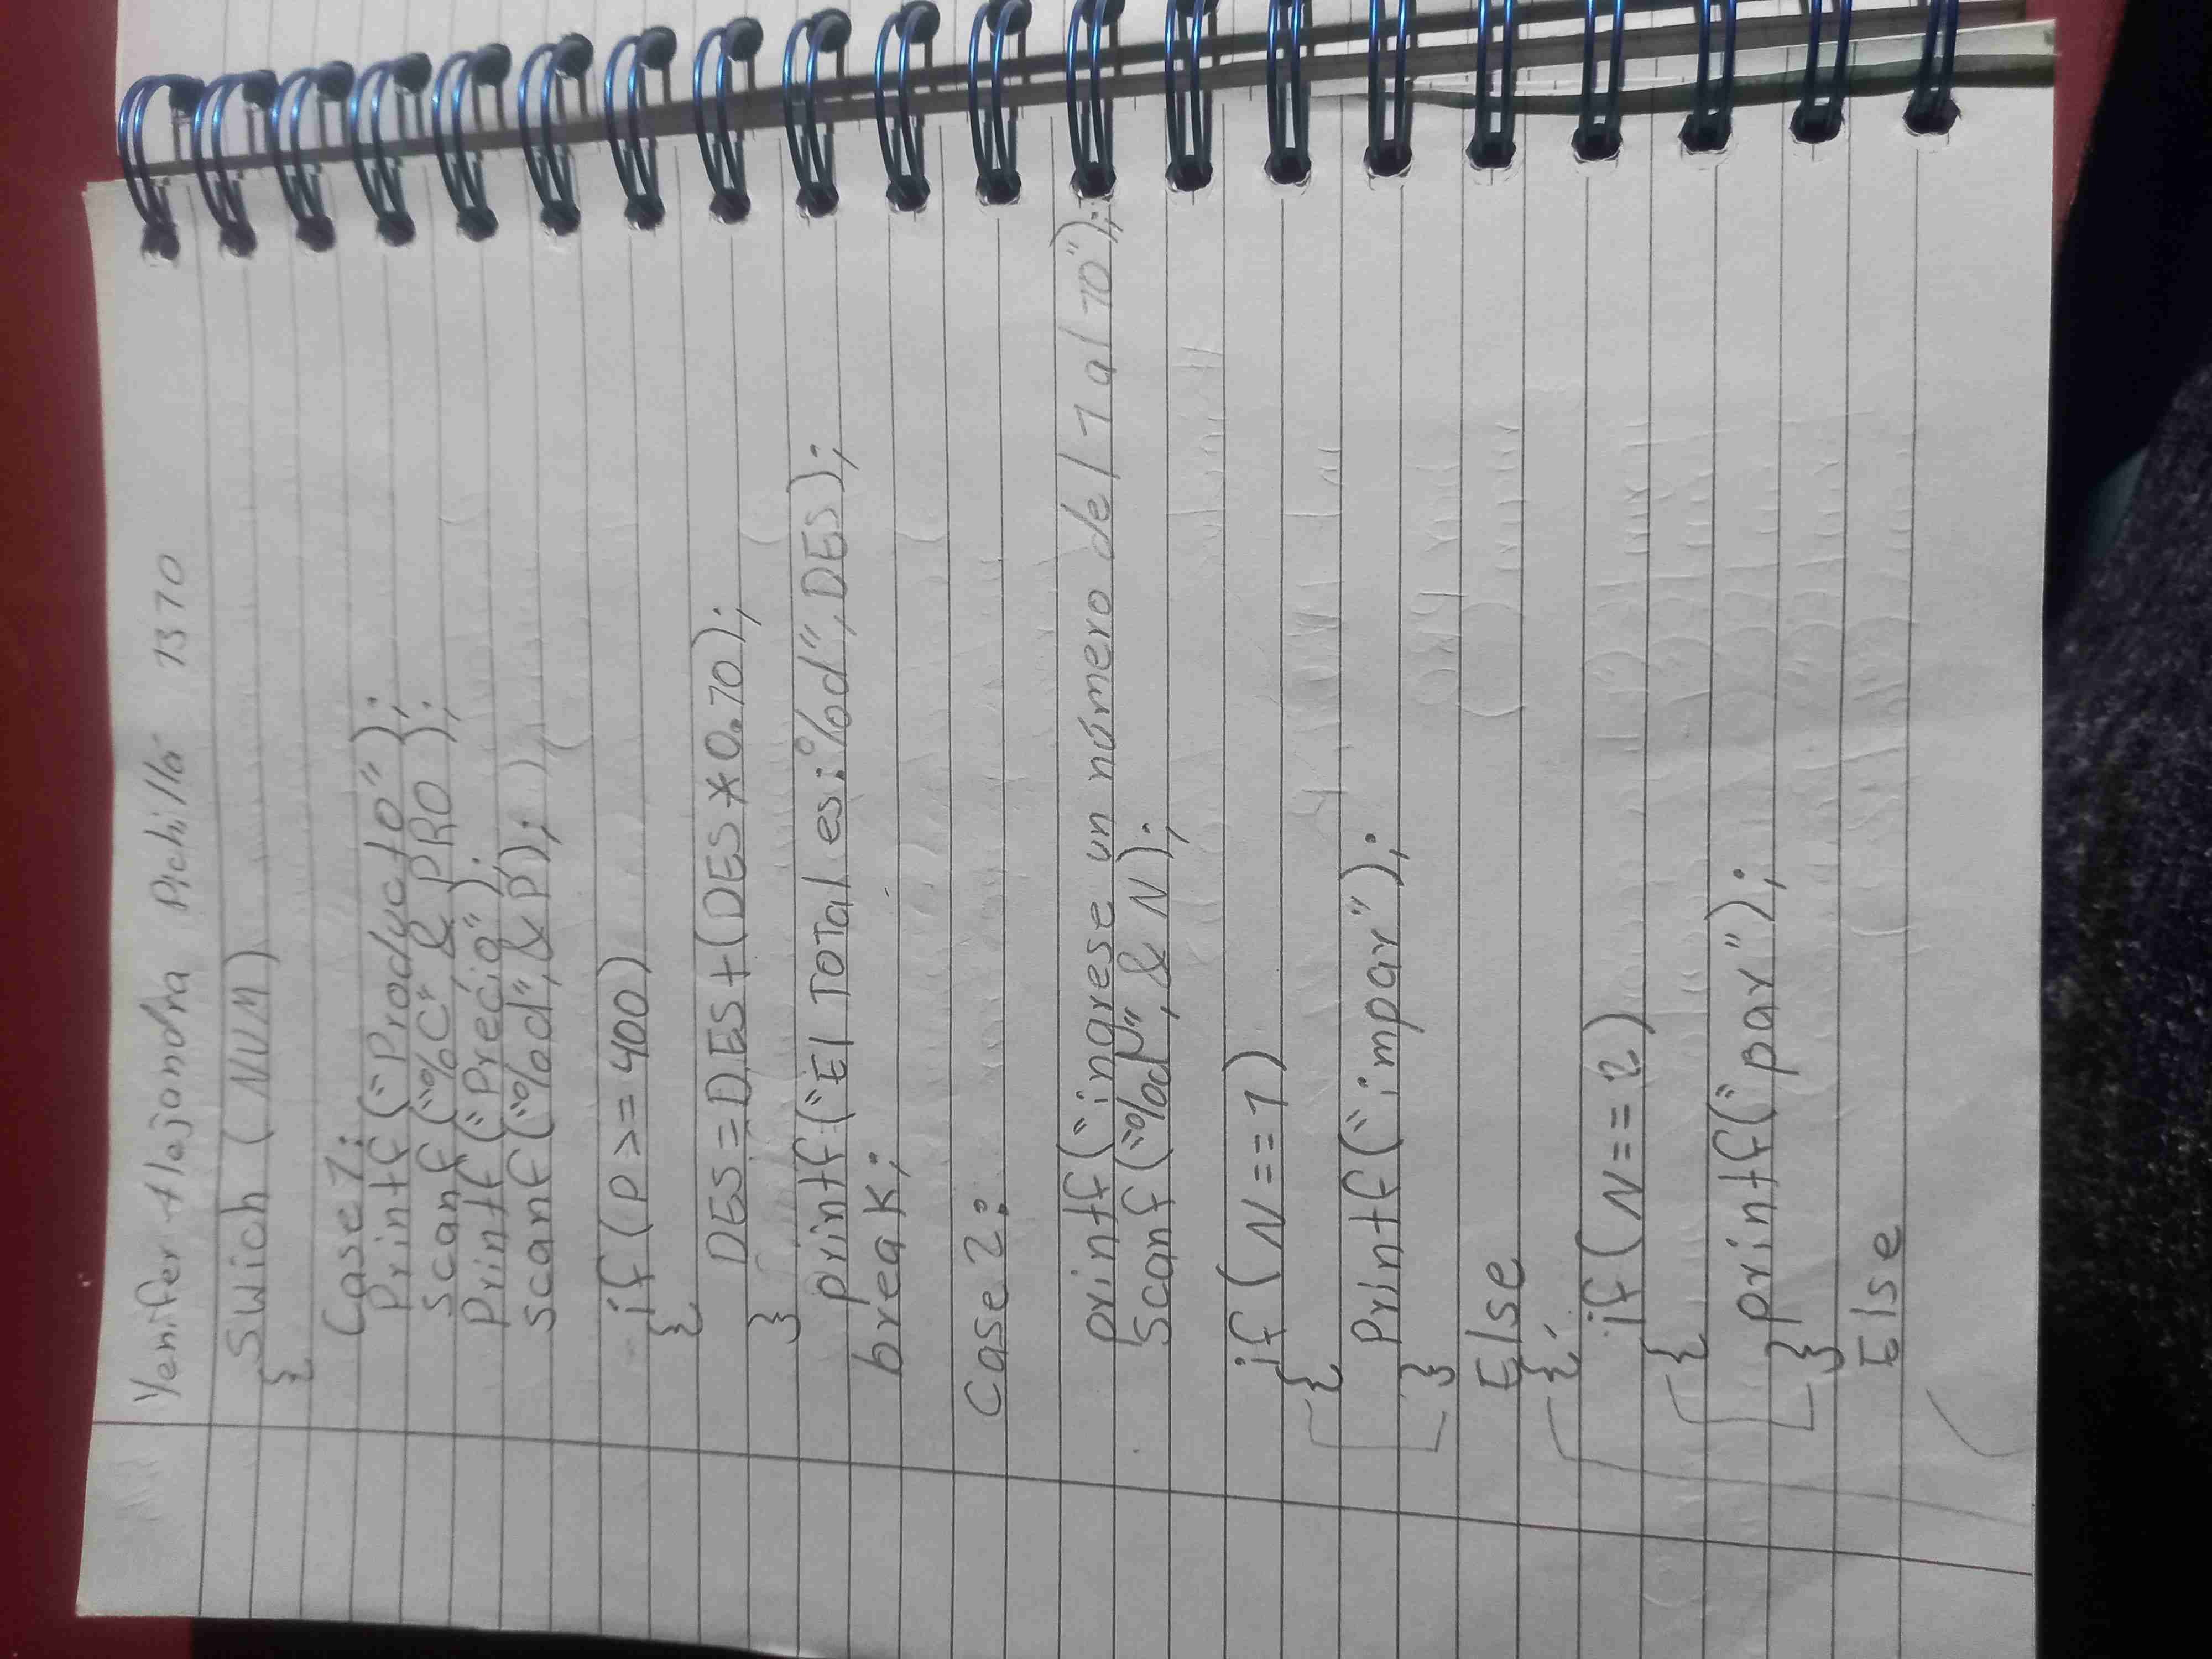 Yenifer Alejandra Pichillá 1370
Swich (NUM)
{
Case 1:
Printf ("Producto");
scanf ("%c" & PRO);
Printf ("Precio");
scanf ("%d", & P);
if (P >= 400)
{
DES = DES + (DES * 0.10);
}
printf ("El Total es: %d", DES);
break;
Case 2:
printf ("ingrese un número del 1 al 10");
Scanf ("%d", & N);
if (N == 1)
{
Printf ("impar");
}
Else
{
if (N == 2)
{
printf ("par");
}
Else